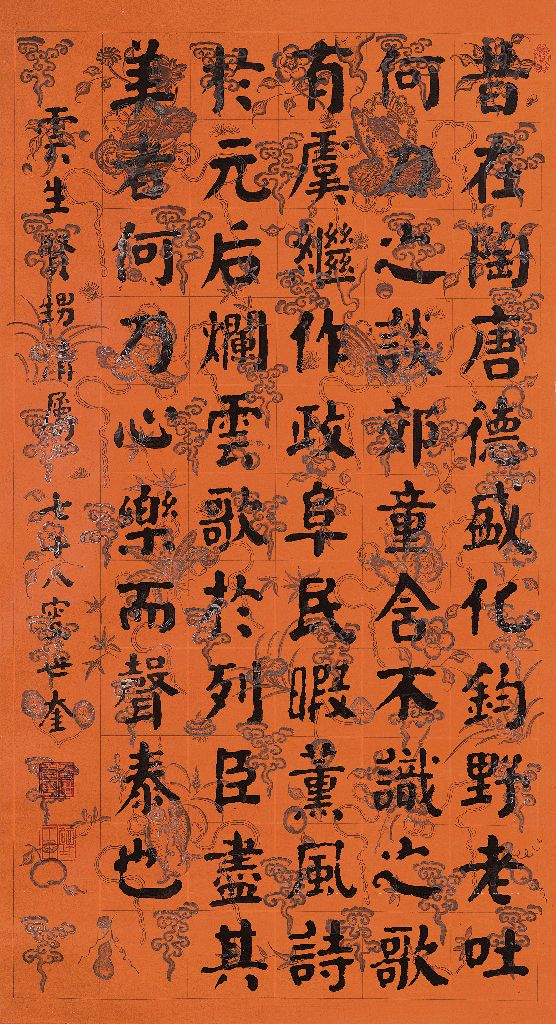 昔在陶唐德盛化鈞野老吐
何力之談郊童含不識之歌
有虞繼作政阜民暇薰風詩
於元后爛雲歌於列臣盡其
美者何乃心樂而聲泰也
雲生賢甥清屬 七十八叟世奎